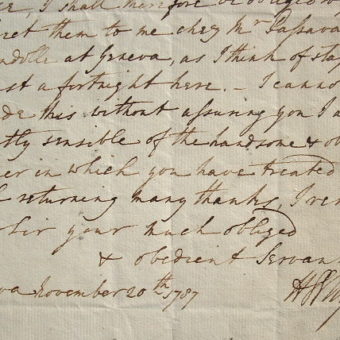 I shall therefore be obliged
them to me chez Mr Passava
at Geneva, as I think of stay
a fortnight here. - I canno
this without assuring you I a
sensible of the handsome &
er in which you have treated
returning many thanks, I re
Sir your much obliged
& obedient Servan
va November 20th 1787